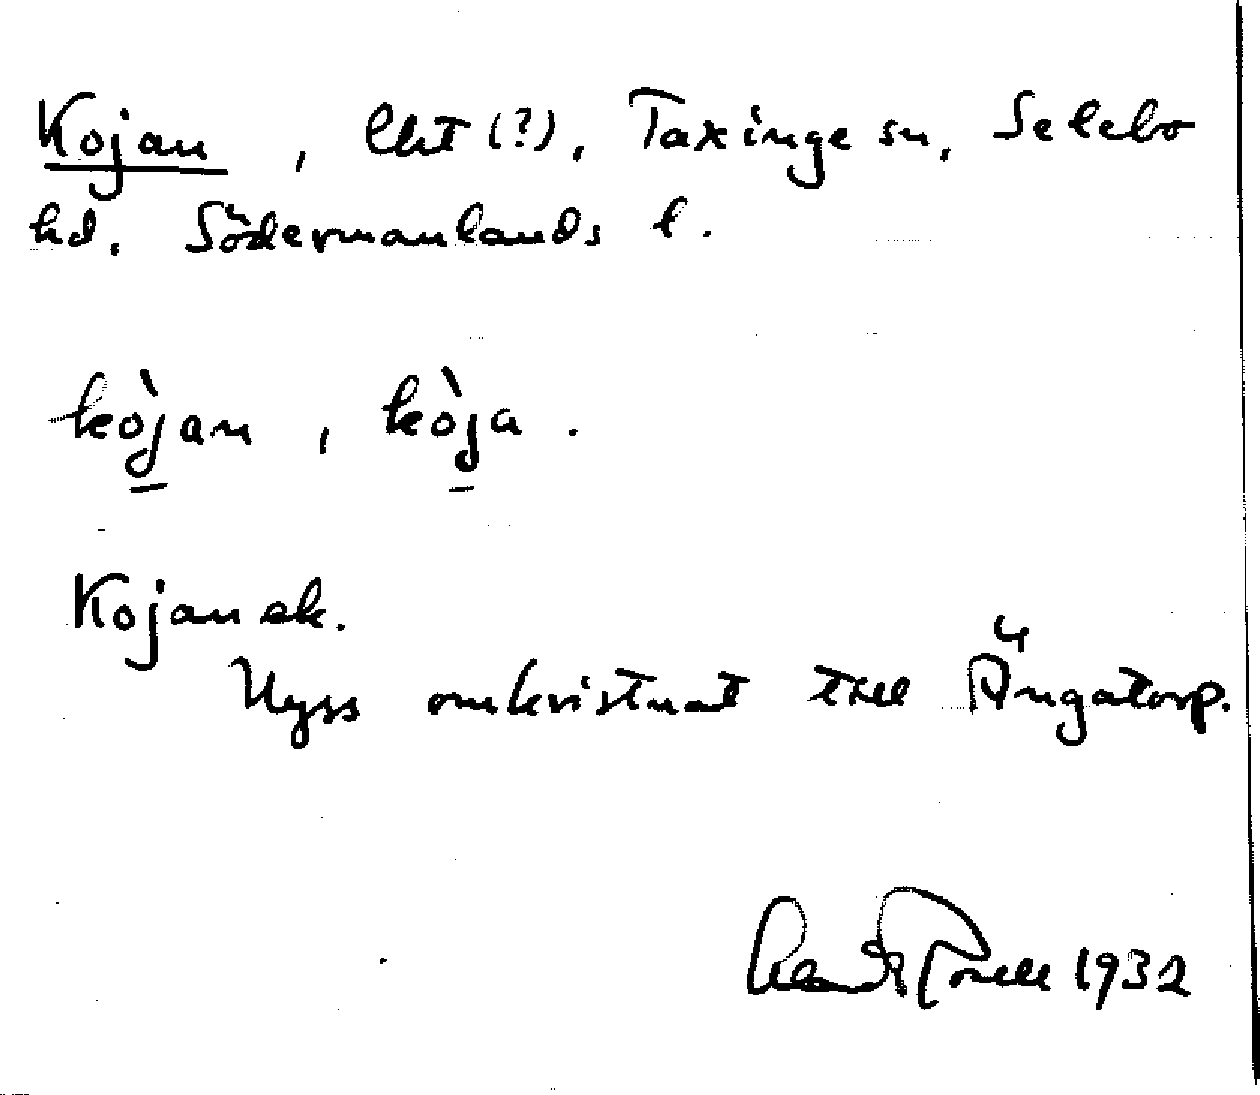 Kojan, lht (?), Taxinge sn, Selebo
hd. Södermanlands l.
kòjan, kòja.
Kojan ek.
Nyss omkristnat till Ängatorp.
1932